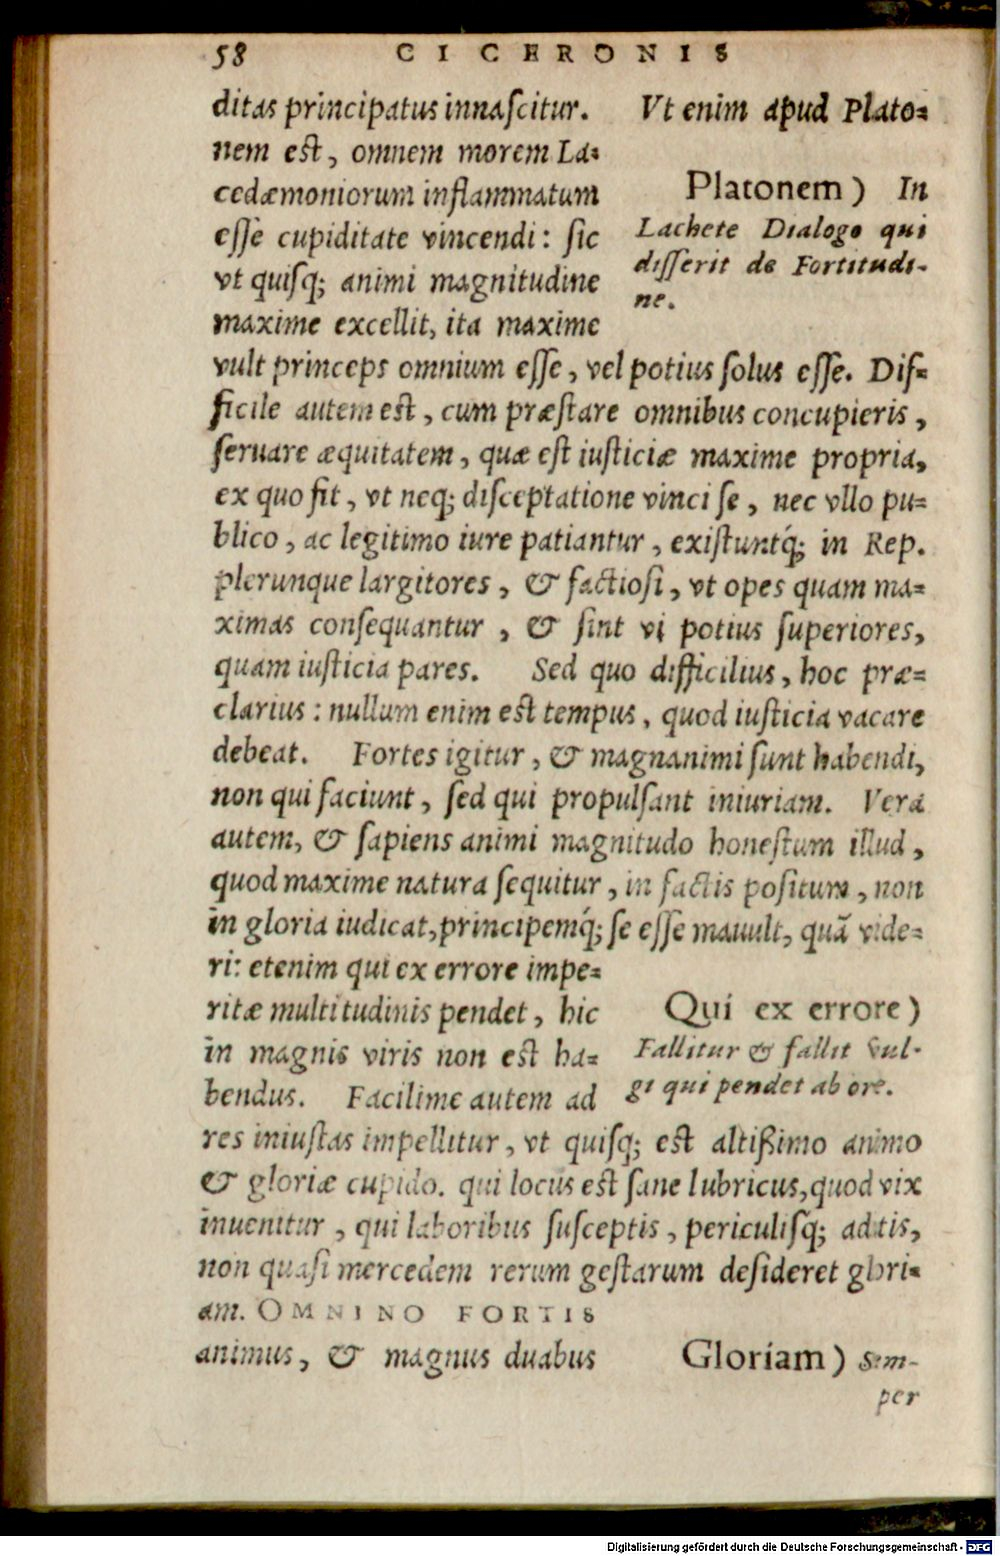 58 CICERONIS
ditas principatus innaſcitur. Vt enim apud Plato=
nem eſt, omnem morem La=
cedæmoniorum inflammatum
eſſe cupiditate vincendi: ſic
vt quiſq; animi magnitudine
maxime excellit, ita maxime
Platonem) In
Lachete Dialogo qui
diſſerit de Fortitudi-
ne.
vult princeps omnium eſſe, vel potius ſolus eſſe. Dif=
ficile autem eſt, cum præſtare omnibus concupieris,
ſeruare æquitatem, quæ eſt iuſticiæ maxime propria,
ex quo fit, vt neq; diſceptatione vinci ſe, nec vllo pu=
blico, ac legitimo iure patiantur, exiſtuntq́; in Rep.
plerunque largitores, & factioſi, vt opes quam ma=
ximas conſequantur, & ſint vi potius ſuperiores,
quam iuſticia pares. Sed quo difficilius, hoc præ=
clarius: nullum enim eſt tempus, quod iuſticia vacare
debeat. Fortes igitur, & magnanimi ſunt habendi,
non qui faciunt, ſed qui propulſant iniuriam. Vera
autem, & ſapiens animi magnitudo honeſtum illud,
quod maxime natura ſequitur, in factis poſitum, non
in gloria iudicat, principemq́; ſe eſſe mauult, quã vide=
ri: etenim qui ex errore impe=
ritæ multitudinis pendet, hic
in magnis viris non eſt ha=
bendus. Facilime autem ad
Qui ex errore)
Fallitur & fallit vul-
gi qui pendet ab ore.
res iniuſtas impellitur, vt quiſq; eſt altiſſimo animo
& gloriæ cupido. qui locus eſt ſane lubricus, quod vix
inuenitur, qui laboribus ſuſceptis, periculiſq; aditis,
non quaſi mercedem rerum geſtarum deſideret glori=
am. OMNINO FORTIS
animus, & magnus duabus
Gloriam) Sem-
per
Digitalisierung gefördert durch die Deutsche Forschungsgemeinschaft - DFG